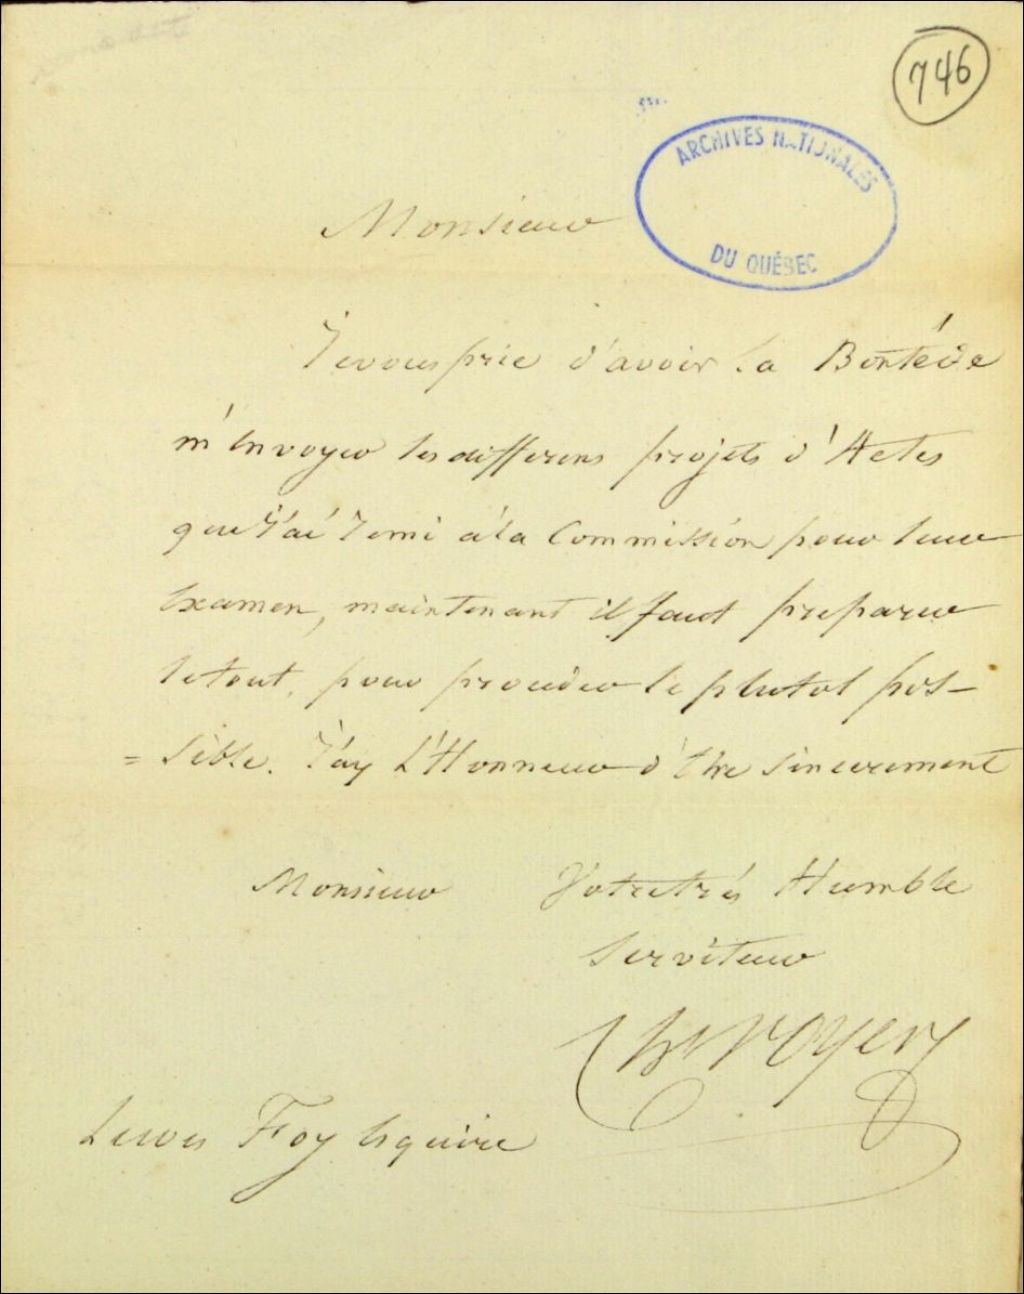 746
ARCHIVES NATIONALES
DU QUÉBEC
Monsieur
Je vous prie d'avoir la Bonté de
m'Envoyer les differens projets d'Actes
que J'ai Remi à la Commission pour leur
Examen, maintenant il faut preparer
le tout, pour proceder le plutot pos-
= sible. J'ay L'Honneur d'Etre sincerement
Monsieur Votre trés Humble
Serviteur
Ch Voyer
Lewis Foy Esquire